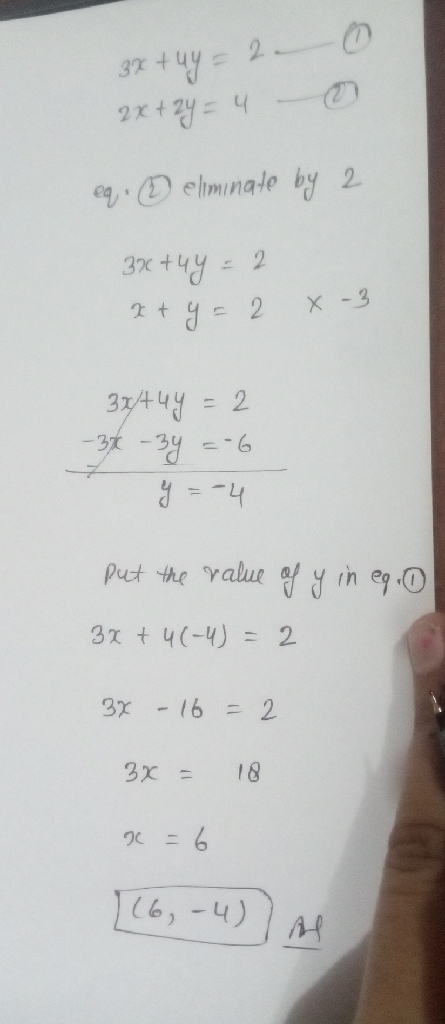 3x + 4y = 2 — ①
2x + 2y = 4 — ②
eq. ② eliminate by 2
3x + 4y = 2
x + y = 2 x -3
3x + 4y = 2
-3x - 3y = -6
y = -4
Put the value of y in eq. ①
3x + 4(-4) = 2
3x - 16 = 2
3x = 18
x = 6
(6, -4)